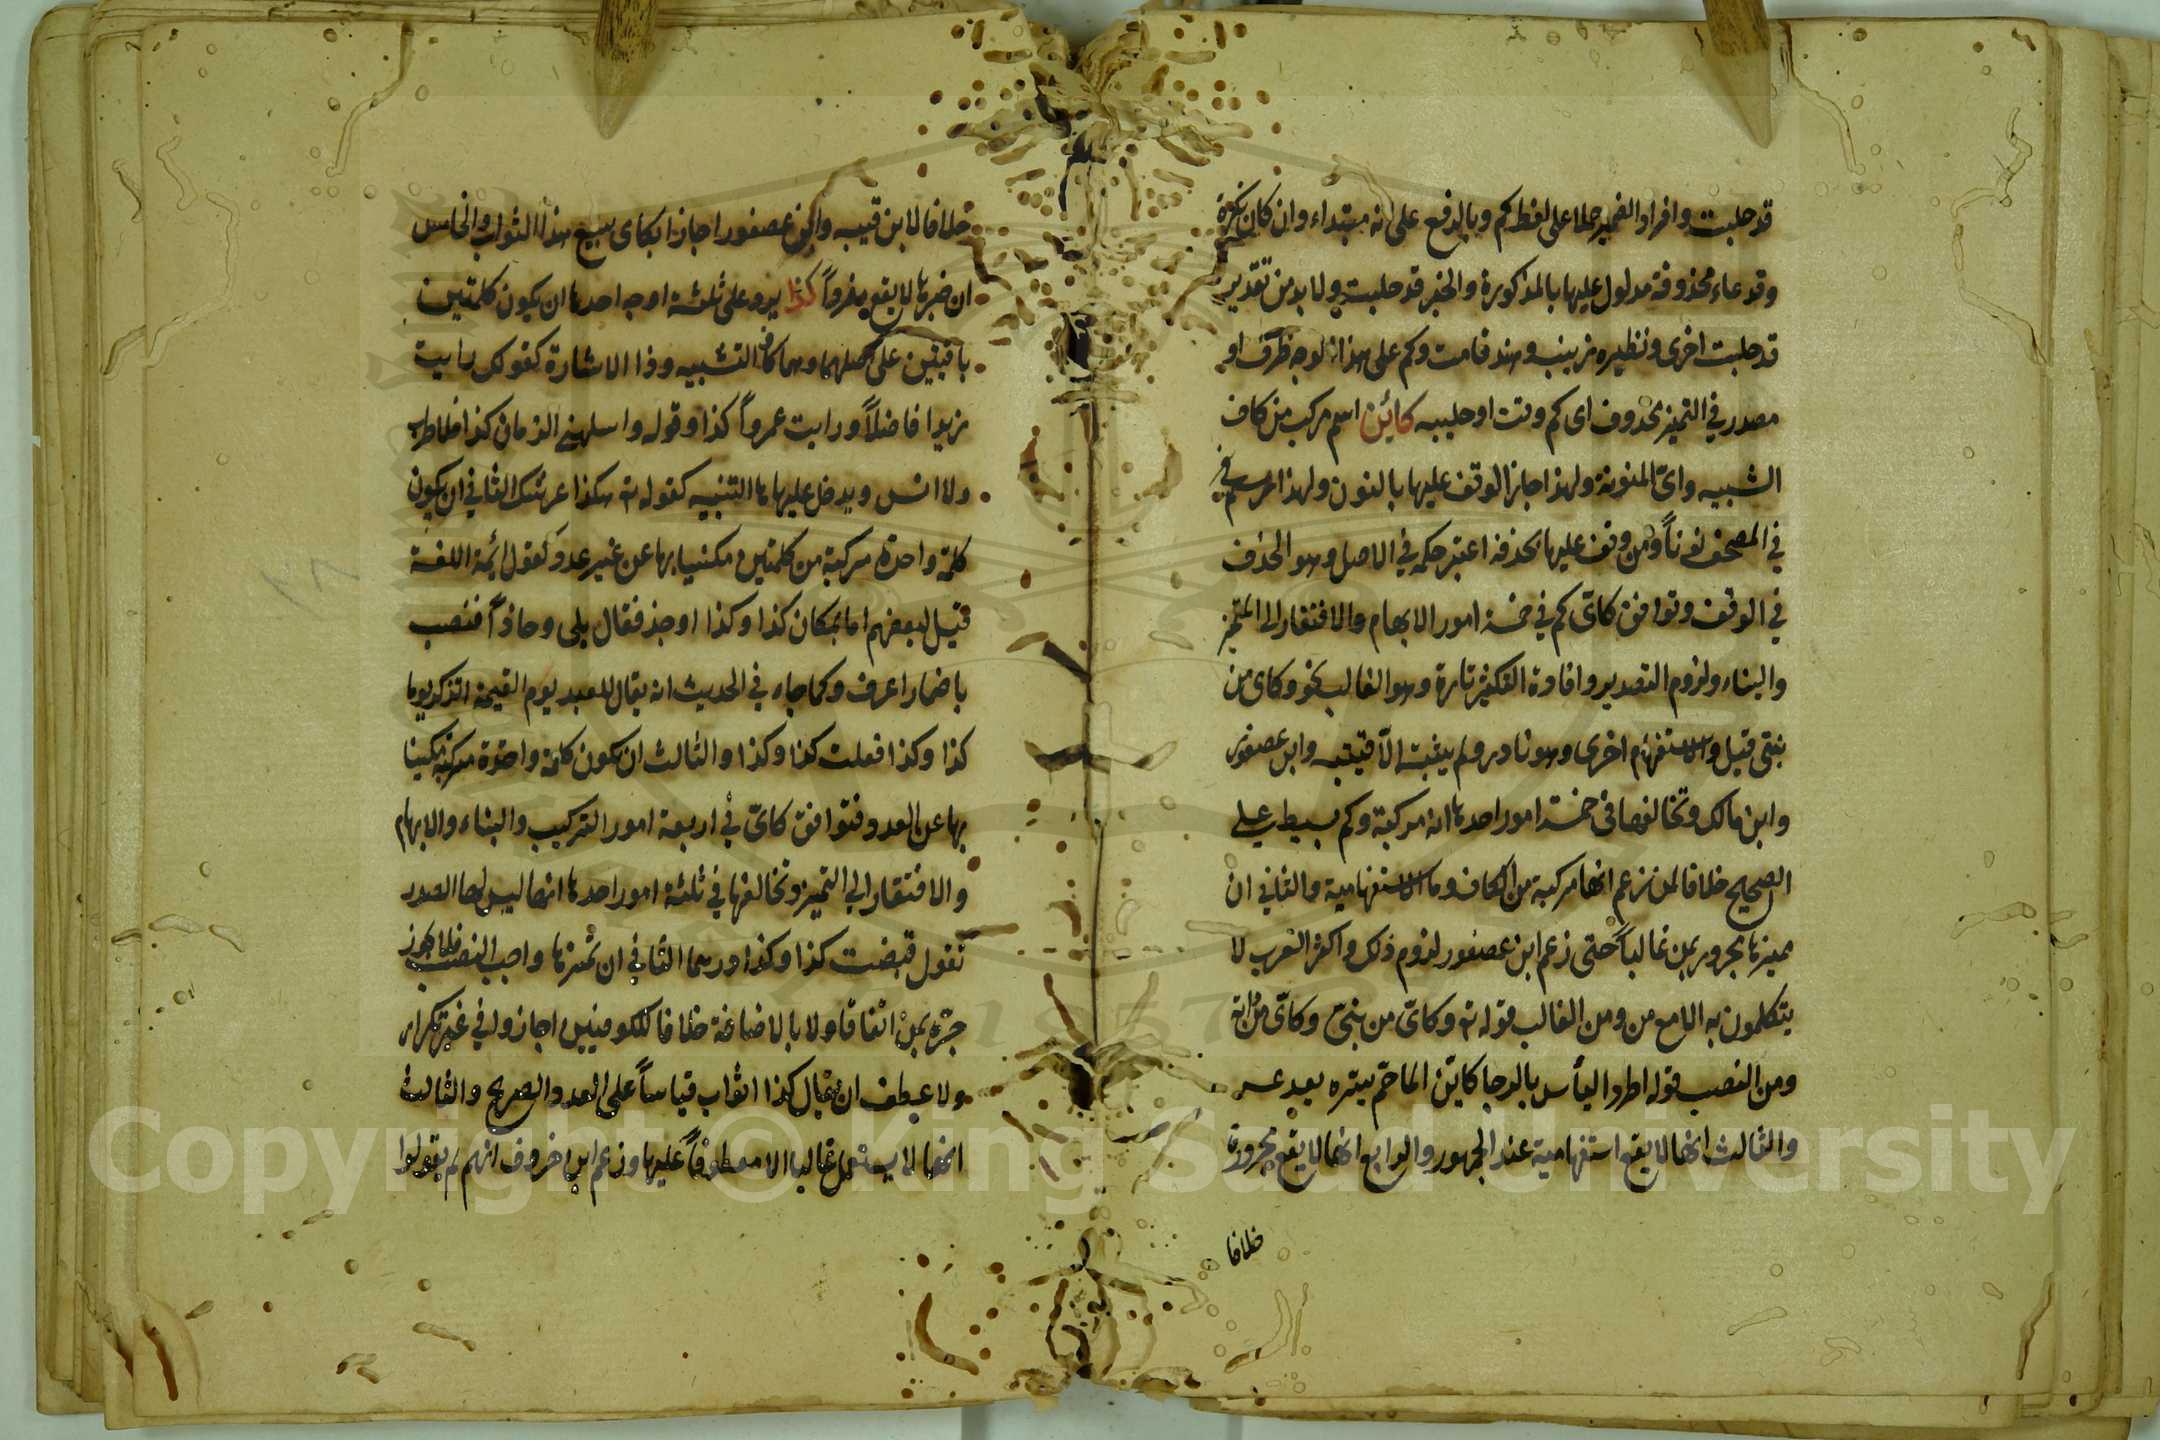 قد حلبت وافراد الضمير حملا على لفظ كم وبالرفع على انه مبتداء وان كان نكرة
وقدعاء محذوفة مدلول عليها بالمذكورة والخبر قد حلبت ولا بد من تقدير
قد حلبت اخرى ونظيره زينب وهند قامت وكم على هذا الوجه ظرف او
مصدر في التميز محذوف اى كم وقت او حلبيه كائن اسم مركب من كاف
الشبيه واىّ المنونة ولهذا جاز الوقف عليها بالنون ولهذا رسم في
في المصحف نونا ومن وقف عليها بحذفه اعتبر حكمه في الاصل وهو الحذف
في الوقف وتوافق كاىّ كم في خمسة امور الابهام والافتقار الى المتميز
والبناء ولزوم التصدير وافادة التكثير تارة وهو الغالب نحو وكاى من
بنيّ قتيل والاستفهام اخرى وهو نادر ولم يثبت الّا قتيبه وابن عصفور
وابن مالك وتخالفها في خمسة امور احدها انه مركبة وكم بسيط على
الصحيح خلافا لمن زعم انها مركبة من الكاف وما الاستفهامية والثاني ان
مميزها مجرور بمن غالباً حتى زعم ابن عصفور لزوم ذلك واكثر العرب لا
يتكلمون به الا مع من ومن الغالب قوله ته وكاىّ من بنىّ وكاىّ من داته
ومن النصب قوله اطرد اليأس بالرجا كائن الما حمّ يسره بعد عسر
والثالث انها لا يقع استفهامية عند الجمهور والرابع انها لا يقع مجرورة
خلافا
خلافا لابن قتيبه وابن عصفور اجازا بكاى يبيع هذا الثواب والخامس
ان خبرها لا يقع مفرداً كذا يرد على ثلثة اوجه احدها ان يكون كلمتين
باقيتين على اصلهما وهما كاف التشبيه وذا الاشارة كقولك رايت
زيدا فاضلاً ورايت عمرواً كذا وقوله واسلمني الزمان كذا فلا طرب
ولا انس ويدخل عليها ها التنبيه كقوله ته هكذا عرشك الثاني ان يكون
كلمة واحدة مركبة من كلمتين مكنيا بها عن غير عدد كقول ائمة اللغة
قيل لبعضهم اما بمكان كذا وكذا وجذ فقال بلى وجاذاً فنصب
باضمار اعرف وكما جاء في الحديث انه يقال للعبد يوم القيمة اتذكر يوما
كذا وكذا فعلت كذا وكذا والثالث ان يكون كلمة واحدة مركبة مكينا
بها عن العدد فتوافق كاىّ في اربعة امور التركيب والبناء والابهام
والافتقار الى التميز وتخالفها في ثلثة امور احدها انها ليس لها الصدر
تقول قبضت كذا وكذا درهما الثاني ان تميزها واجب النصب فلا يجوز
جرّه بمن اتفاقا ولا بالاضافة خلافا للكوفيين اجازوا في غير تكرار
ولا عطف ان يقال كذا اثواب قياساً على العدد الصريح والثالث
انها لا يستعمل غالبا الا معطوفاً عليها وزعم ابن خروف انهم لم يقولوا